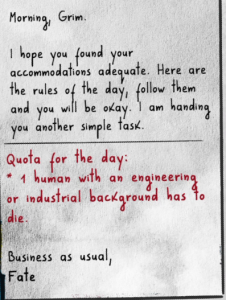 Morning, Grim.
I hope you found your
accommodations adequate. Here are
the rules of the day, follow them
and you will be okay. I am handing
you another simple task.
Quota for the day:
* 1 human with an engineering
or industrial background has to
die.
Business as usual,
Fate